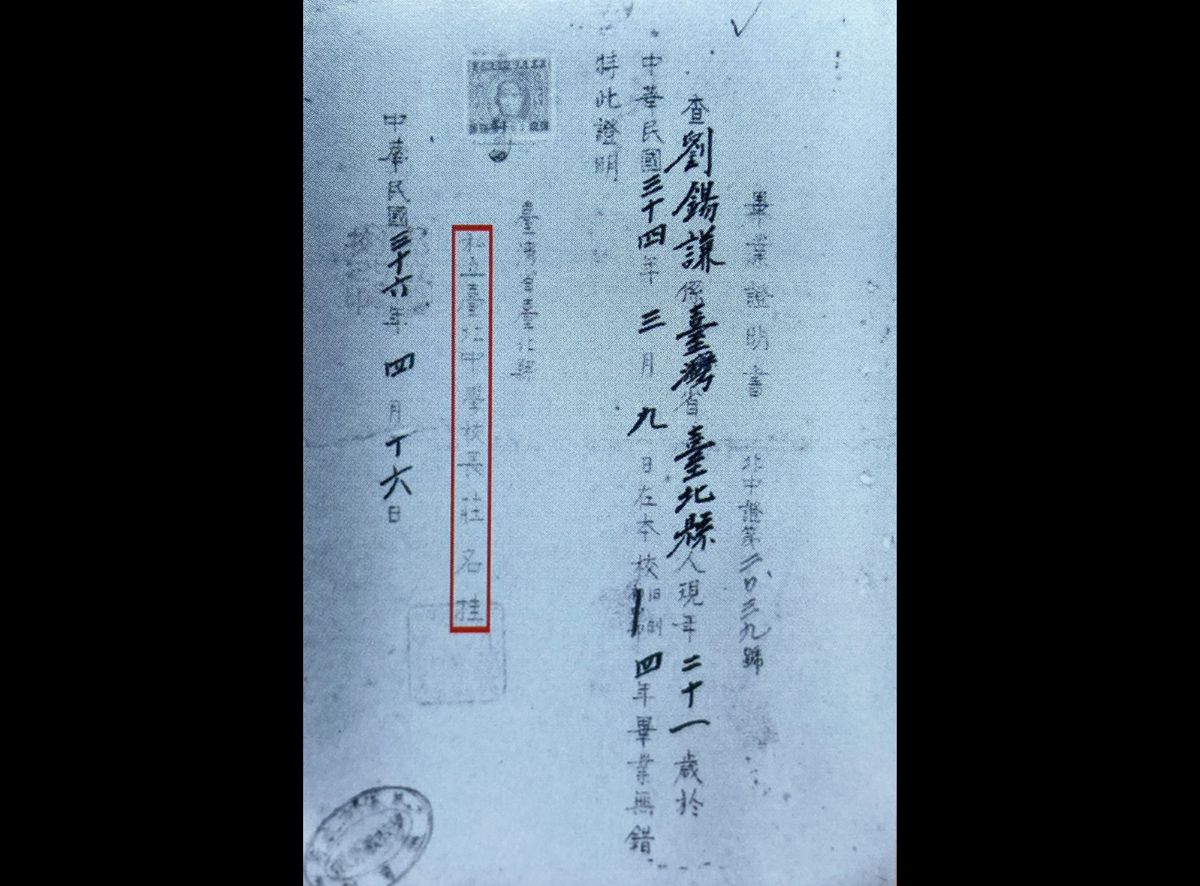 畢業證明書
北中證第二〇三九號
查劉錫謙係臺灣省臺北縣人現年二十一歲於
中華民國三十四年三月九日在本校旧制四年畢業無錯
特此證明
臺灣省臺北縣
私立臺北中學校長莊名桂
中華民國三十六年四月十六日